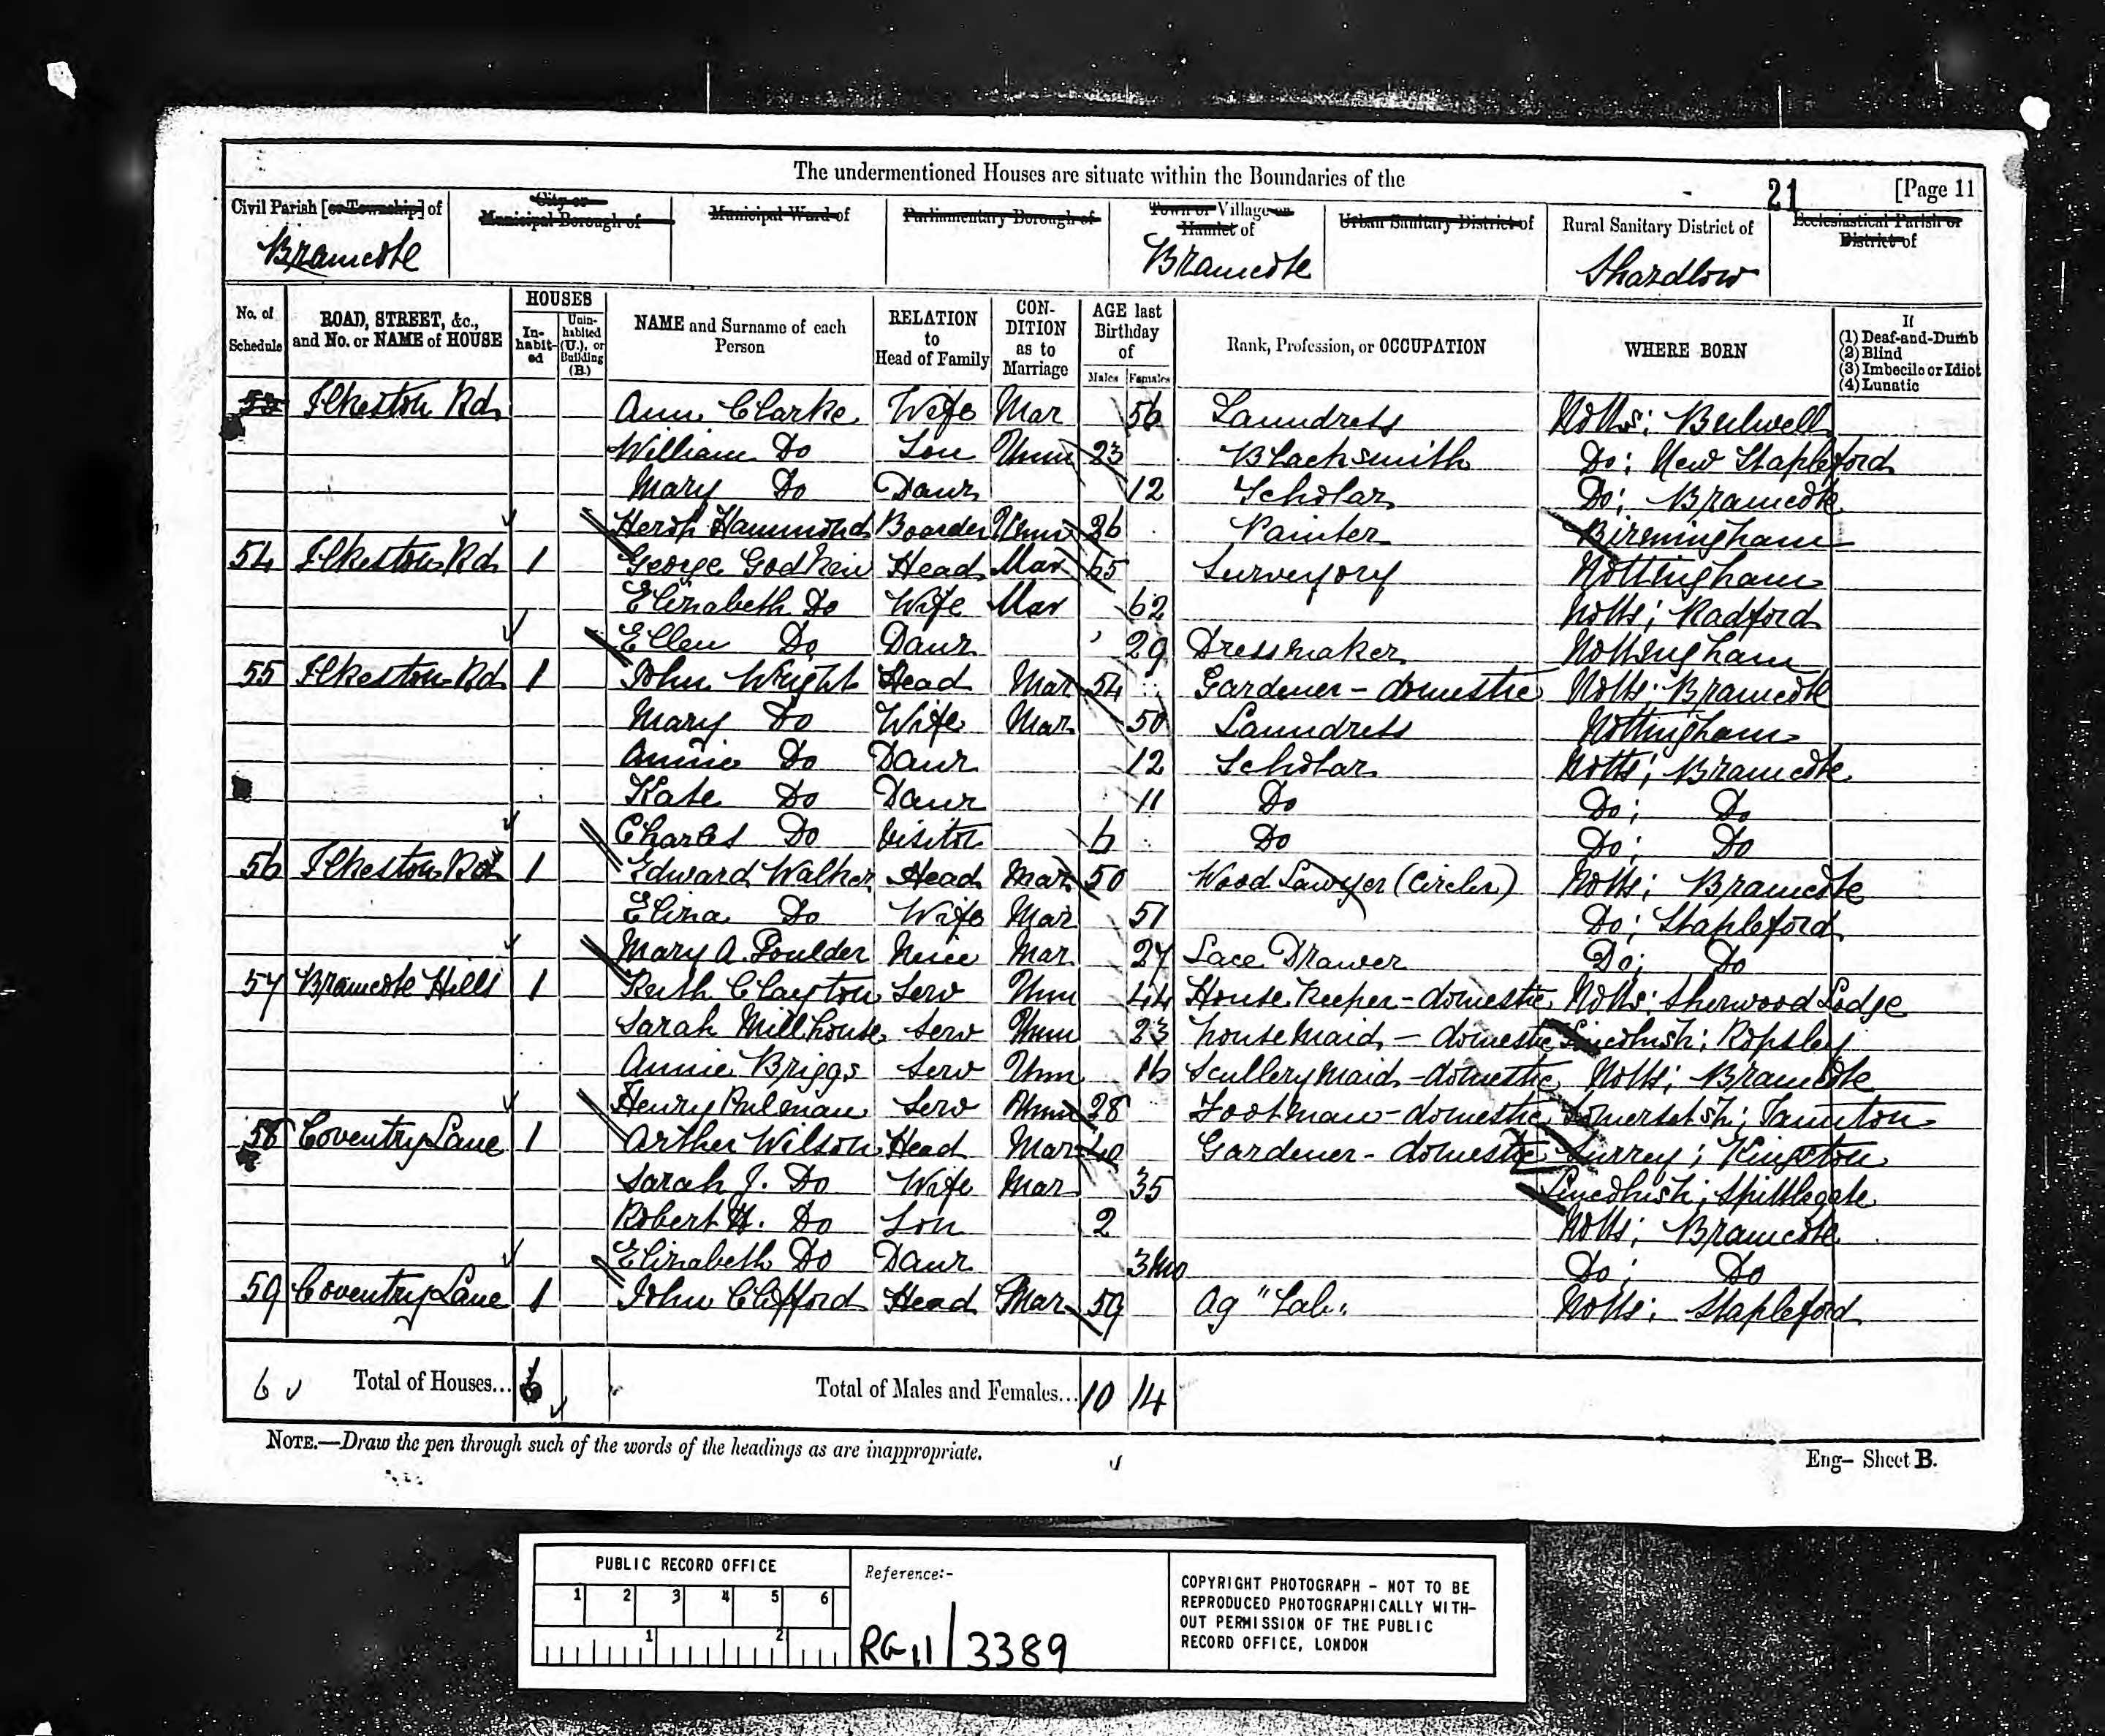 The undermentioned Houses are situate within the Boundaries of the
21 [Page 11
Civil Parish [or Township] of Bramcote
City or Municipal Borough of
Municipal Ward of
Parliamentary Borough of
Town or Village or Hamlet of Bramcote
Urban Sanitary District of
Rural Sanitary District of Shardlow
Ecclesiastical Parish or District of
No. of Schedule
ROAD, STREET, &c., and No. or NAME of HOUSE
HOUSES
In-habit-ed
Unin-habited (U.), or Building (B.)
NAME and Surname of each Person
RELATION to Head of Family
CON-DITION as to Marriage
AGE last Birthday of
Males Females
Rank, Profession, or OCCUPATION
WHERE BORN
If
(1) Deaf-and-Dumb
(2) Blind
(3) Imbecile or Idiot
(4) Lunatic
53 Ilkeston Rd Ann Clarke Wife Mar 56 Laundress Notts; Bulwell
William Do Son Unm 23 Blacksmith Do; New Stapleford
Mary Do Daur 12 Scholar Do; Bramcote
Hammond Boarder Unm 26 Painter Birmingham
54 Ilkeston Rd 1 George Godkin Head Mar 65 Nottingham
Elizabeth Do Wife Mar 62 Notts; Radford
Ellen Do Daur 29 Dressmaker Nottingham
55 Ilkeston Rd 1 John Wright Head Mar 54 Gardener - domestic Notts; Bramcote
Mary Do Wife Mar 50 Laundress Nottingham
Annie Do Daur 12 Scholar Notts; Bramcote
Kate Do Daur 11 Do Do; Do
Charles Do Visitor 6 Do Do; Do
56 Ilkeston Rd 1 Edward Walker Head Mar 50 Wood Sawyer (Circler) Notts; Bramcote
Eliza Do Wife Mar 51 Do; Stapleford
Mary A. Poulder Niece Mar 27 Lace Drawer Do; Do
57 Bramcote Hills 1 Ruth Clayton Serv Unm 44 House Keeper - domestic Notts; Sherwood Lodge
Sarah Millhouse Serv Unm 23 housemaid - domestic Lincolnsh; Ropsley
Annie Briggs Serv Unm 16 Scullery maid - domestic Notts; Bramcote
Henry Pulman Serv Unm 28 Footman - domestic Somersetsh; Taunton
58 Coventry Lane 1 Arther Wilson Head Mar 40 Gardener - domestic Surrey; Kingston
Sarah J. Do Wife Mar 35 Lincolnsh; Spittlegate
Robert H. Do Son 2 Notts; Bramcote
Elizabeth Do Daur 3mo Do; Do
59 Coventry Lane 1 John Clifford Head Mar 59 Ag "Lab" Notts; Stapleford
6 Total of Houses... 6 Total of Males and Females... 10 14
NOTE.—Draw the pen through such of the words of the headings as are inappropriate.
Eng- Sheet B.
PUBLIC RECORD OFFICE
1 2 3 4 5 6
1 2
Reference:-
RG 11/3389
COPYRIGHT PHOTOGRAPH - NOT TO BE
REPRODUCED PHOTOGRAPHICALLY WITH-
OUT PERMISSION OF THE PUBLIC
RECORD OFFICE, LONDON